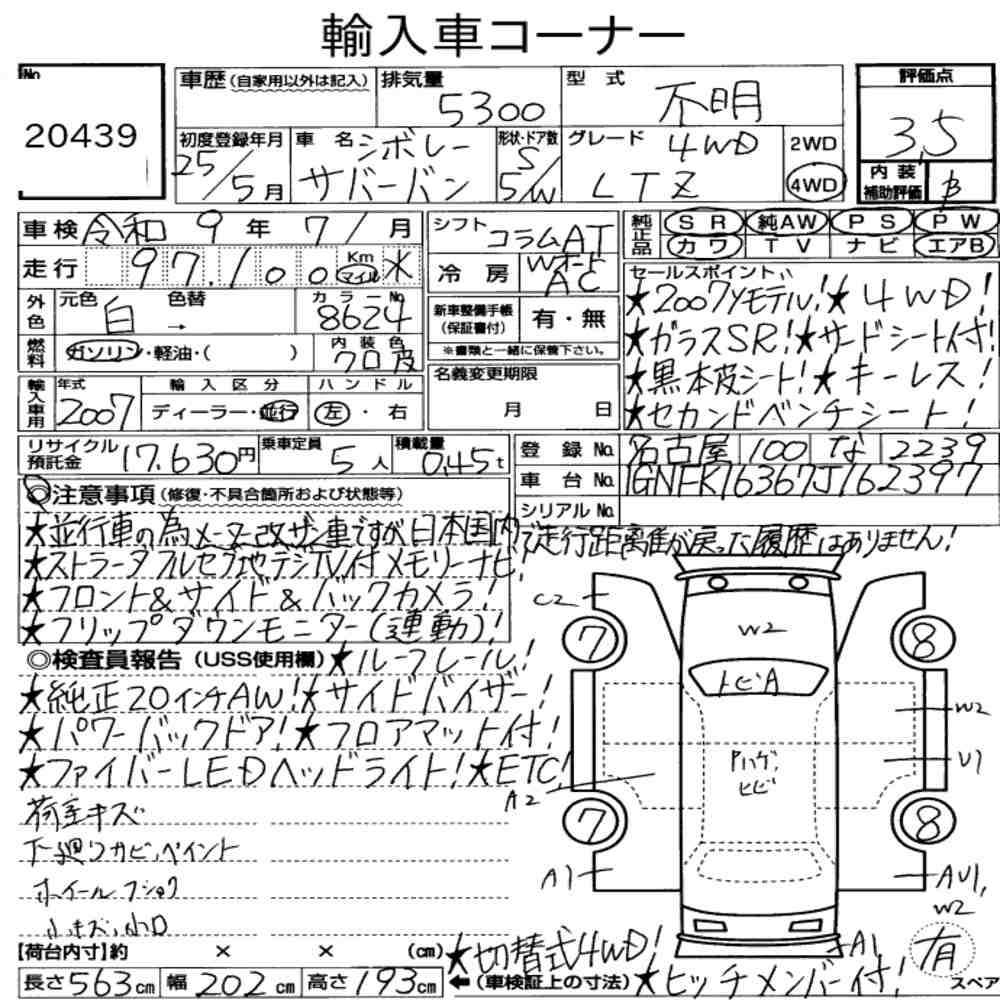 輸入車コーナー
No
20439
車歴 (自家用以外は記入)
排気量
5300
型式
不明
評価点
3.5
初度登録年月
25/5月
車名
シボレー
サバーバン
形状・ドア数
S
5/W
グレード
4WD
LTZ
2WD
4WD
内装
補助評価
B
車検 令和 9年 7/月
シフト
コラムAT
純正品
SR 純AW PS PW
カワ TV ナビ エアB
走行 97.100 Km マイル ※
冷房
Wオート
AC
外色
元色 白 → 色替
カラーNo.
8624
新車整備手帳
(保証書付)
有・無
※書類と一緒に保管下さい。
燃料
ガソリン・軽油・( )
内装色
クロ皮
セールスポイント
★2007Yモデル!★4WD!
★ガラスSR!★サードシート付!
★黒本皮シート!★キーレス!
★セカンドベンチシート!
輸入車用
年式
2007
輸入区分
ディーラー・並行
ハンドル
左・右
名義変更期限
月 日
リサイクル
預託金
17.630円
乗車定員
5人
積載量
0.45t
登録No. 名古屋 100 な 2239
車台No. 1GNFK16367J162397
シリアルNo.
◎注意事項 (修復・不具合箇所および状態等)
★並行車の為メーター改ザン車ですが日本国内で走行距離が戻った履歴はありません!
★ストラーダフルセグ地デジTV付メモリーナビ!
★フロント&サイド&バックカメラ!
★フリップダウンモニター(連動)!
◎検査員報告 (USS使用欄) ★ルーフレール!
★純正20インチAW!★サイドバイザー!
★パワーバックドア!★フロアマット付!
★ファイバーLEDヘッドライト!★ETC!
荷室キズ
下廻りカビ、ペイント
ホイールフショク
小キズ、小凹
C2
7
8
W2
トビA
W2
Pハゲ、
ヒビ
U1
A2
7
8
A1
AU1,
W2
A1
有
スペア
【荷台内寸】約 × × (cm)
★切替式4WD!
長さ563cm 幅202cm 高さ193cm ←(車検証上の寸法)
★ヒッチメンバー付!